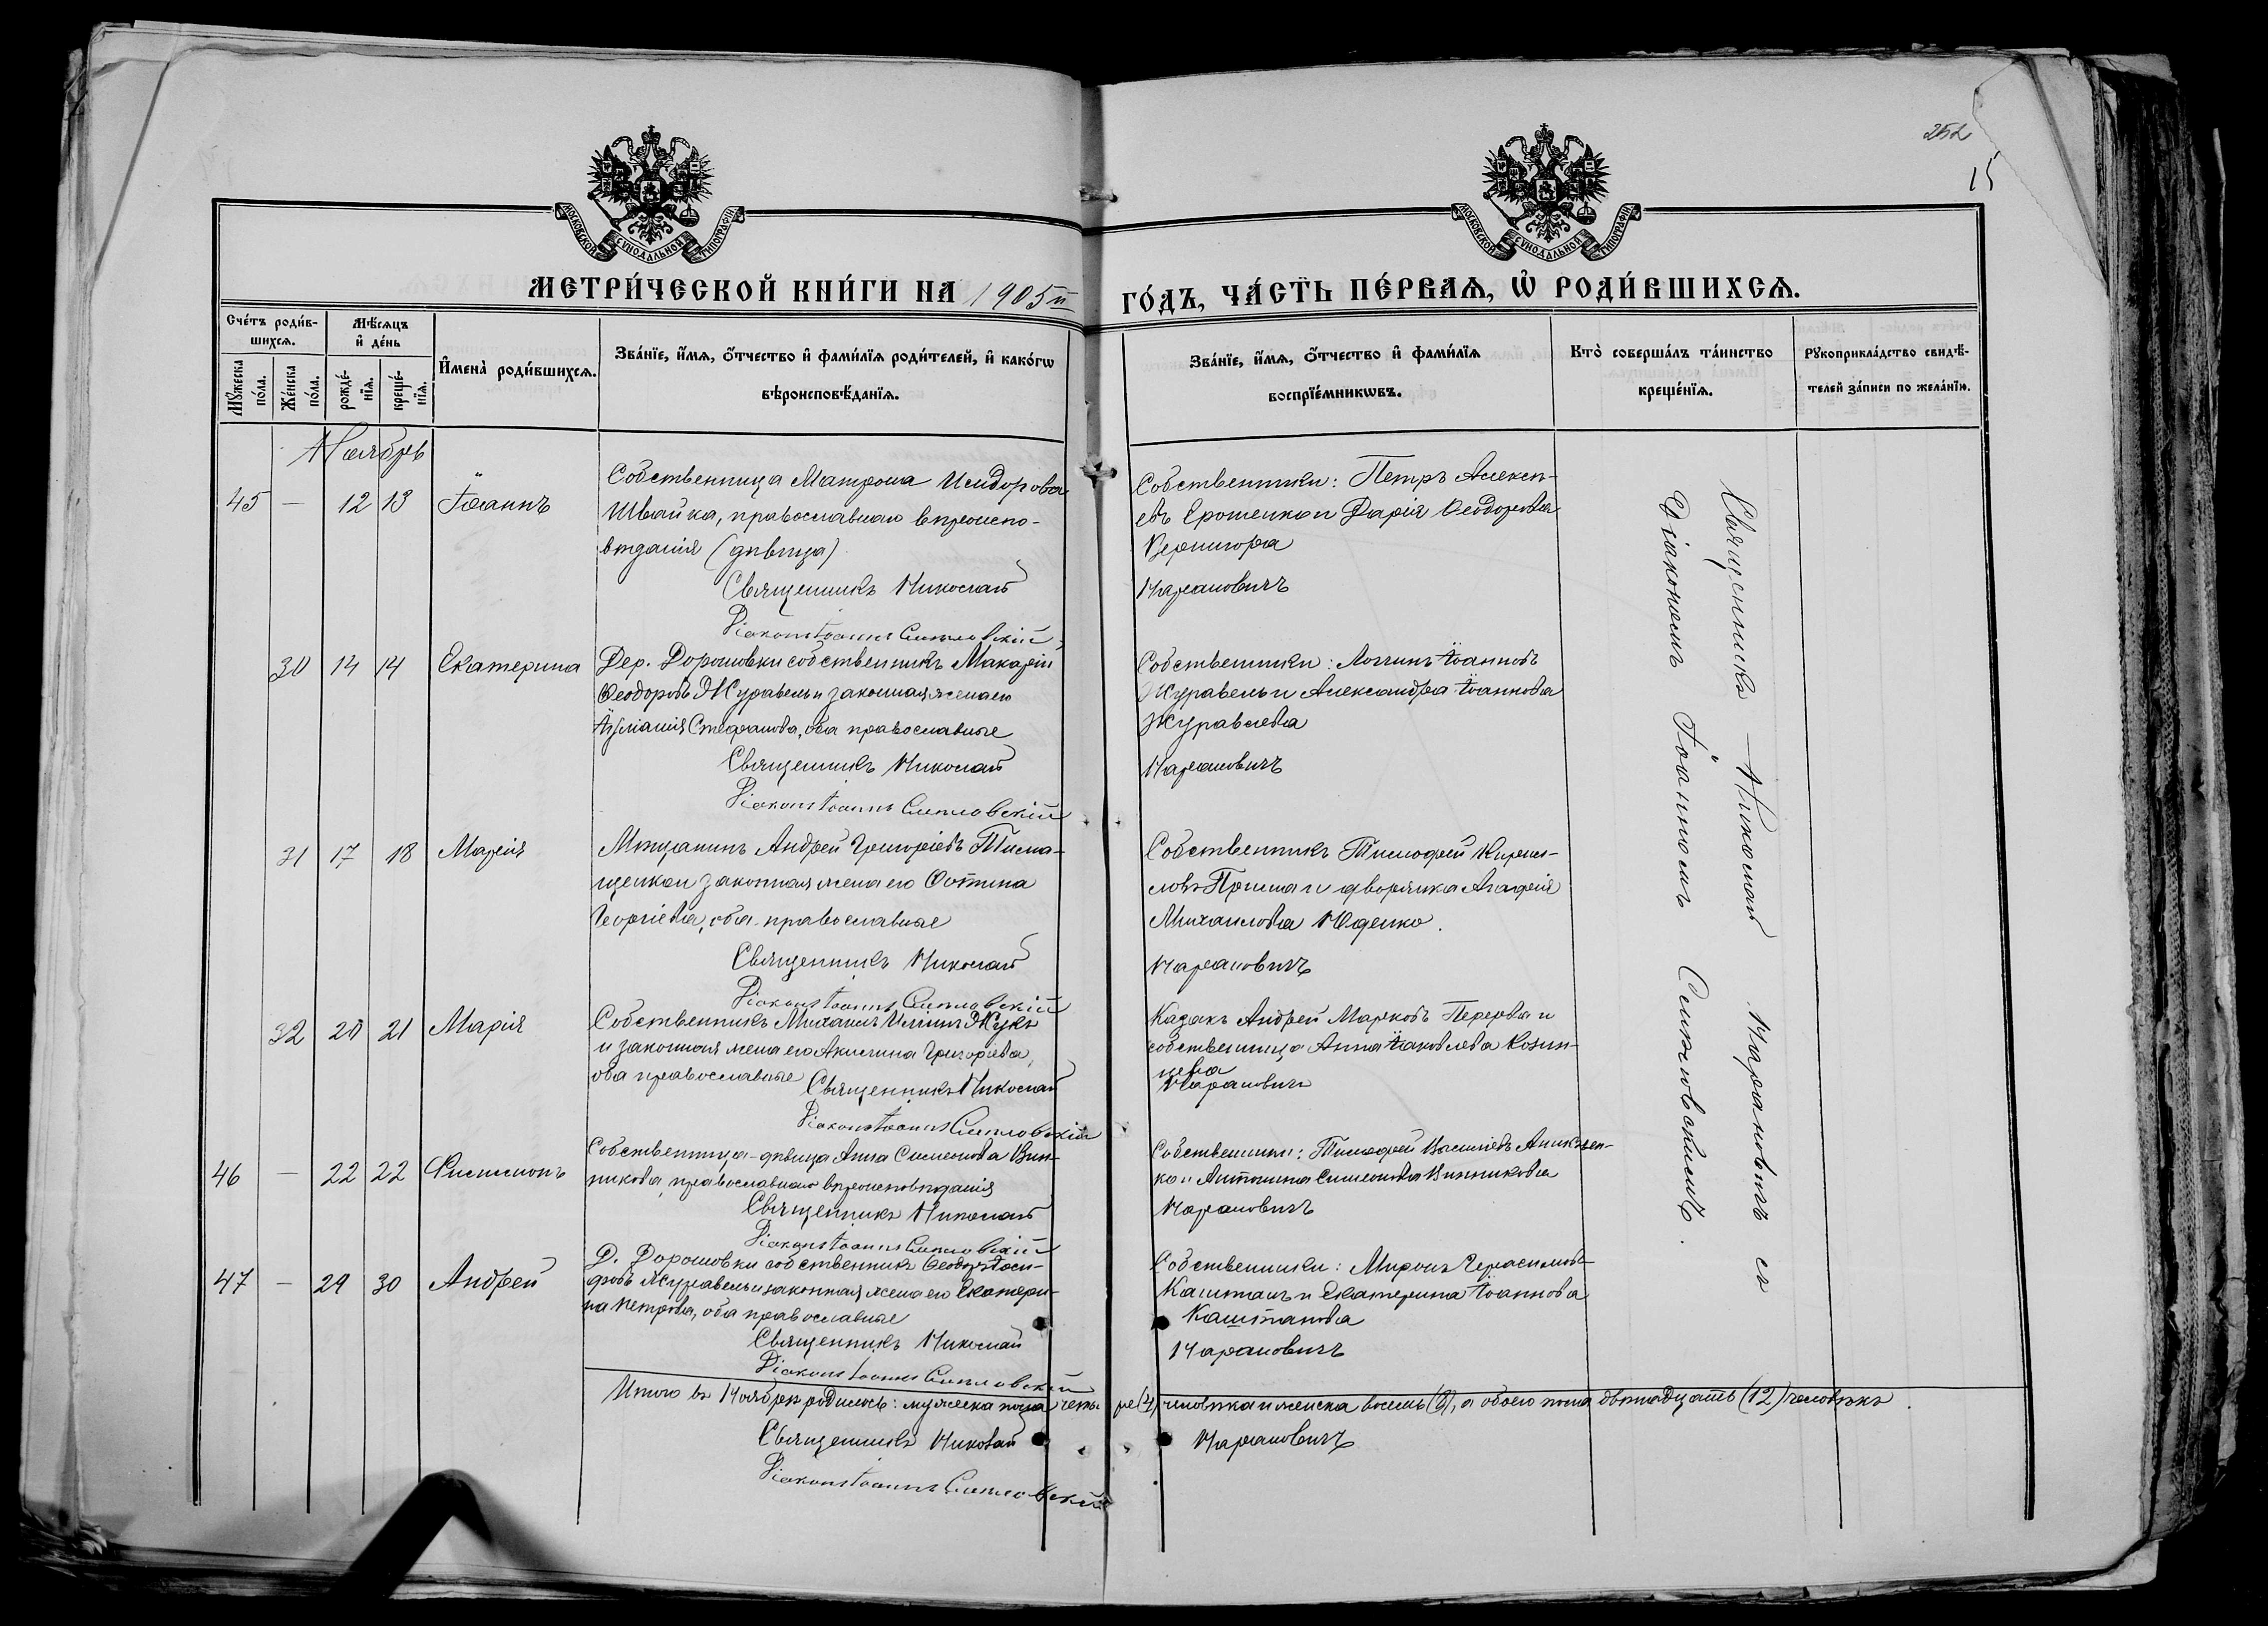 252
15
МОСКОВСКОЙ СѴНОДАЛЬНОЙ ТИПОГРАФІИ
МОСКОВСКОЙ СѴНОДАЛЬНОЙ ТИПОГРАФІИ
МЕТРИ́ЧЕСКОЙ КНИ́ГИ НА 1905й ГО́ДЪ, ЧА́СТЬ ПЕ́РВАѦ, Ѡ РОДИ́ВШИХСѦ.
Сче́тъ роди́в-
шихсѧ.
Мѣ́сѧцъ
и҆ де́нь
Мꙋ́жеска
по́ла.
Же́нска
по́ла.
рожде́-
нїѧ.
креще́-
нїѧ.
И҆мена̀ роди́вшихсѧ.
Зва́нїе, и҆́мѧ, ѻ҆́тчество и҆ фами́лїѧ роди́телей, и҆ како́гѡ
вѣроисповѣ́данїѧ.
Зва́нїе, и҆́мѧ, ѻ҆́тчество и҆ фами́лїѧ
воспрїе́мникѡвъ.
Кто̀ соверша́лъ та́инство
креще́нїѧ.
Рꙋкоприкла́дство свидѣ́-
телей за́писи по жела́нїю.
Ноябрь
45 — 12 13 Іоаннъ
Собственница Матрона Исидорова
Швайка, православнаго вѣроиспо-
вѣданія (дѣвица)
Священникъ Николай
Діаконъ Іоаннъ
Собственники: Петръ Алексѣ-
евъ Ерошенко и Дарія Ѳеодорова
Вернигора
Марановичъ
30 14 14 Екатерина
Дер. Дорошовки собственникъ Макарій
Ѳеодоровъ Журавель и законная жена его
Іуліанія Стефанова, оба православные
Священникъ Николай
Діаконъ Іоаннъ
Собственники: Логгинъ Іоанновъ
Журавель и Александра Іоаннова
Журавлева
Марановичъ
31 17 18 Марія
Мѣщанинъ Андрей Григоріевъ Тима-
щенко и законная жена его
Георгіева, оба православные
Священникъ Николай
Діаконъ Іоаннъ
Собственникъ Тимофей Кирил-
ловъ и дворянка Агафія
Михаилова Юденко.
Марановичъ
32 20 21 Марія
Собственникъ Михаилъ Иліинъ Жукъ
и законная жена его Акилина Григоріева,
оба православные Священникъ Николай
Діаконъ Іоаннъ
Казакъ Андрей Марковъ Перерва и
собственница Анна Іаковлева Козин-
цева
Марановичъ
46 — 22 22 Филимонъ
Собственница-дѣвица Анна Симеонова Вин-
никова, православнаго вѣроисповѣданія
Священникъ Николай
Діаконъ Іоаннъ
Собственники: Тимофей Васильевъ Аникѣен-
ко и Антонина Симеонова Винникова
Марановичъ
47 — 29 30 Андрей
Д. Дорошовки собственникъ Ѳеодоръ Іоси-
фовъ Журавель и законная жена его Екатери-
на Петрова, оба православные
Священникъ Николай
Діаконъ Іоаннъ
Собственники: Миронъ Герасимовъ
Каштанъ и Екатерина Іоаннова
Каштанова
Марановичъ
Итого въ Ноябрѣ родилось: мужеска пола четы-ре (4) человѣка и женска восемь (8), а обоего пола двѣнадцать (12) человѣкъ.
Священникъ Николай Марановичъ
Діаконъ Іоаннъ
Священникъ Николай Марановичъ съ
Діакономъ Іоанномъ